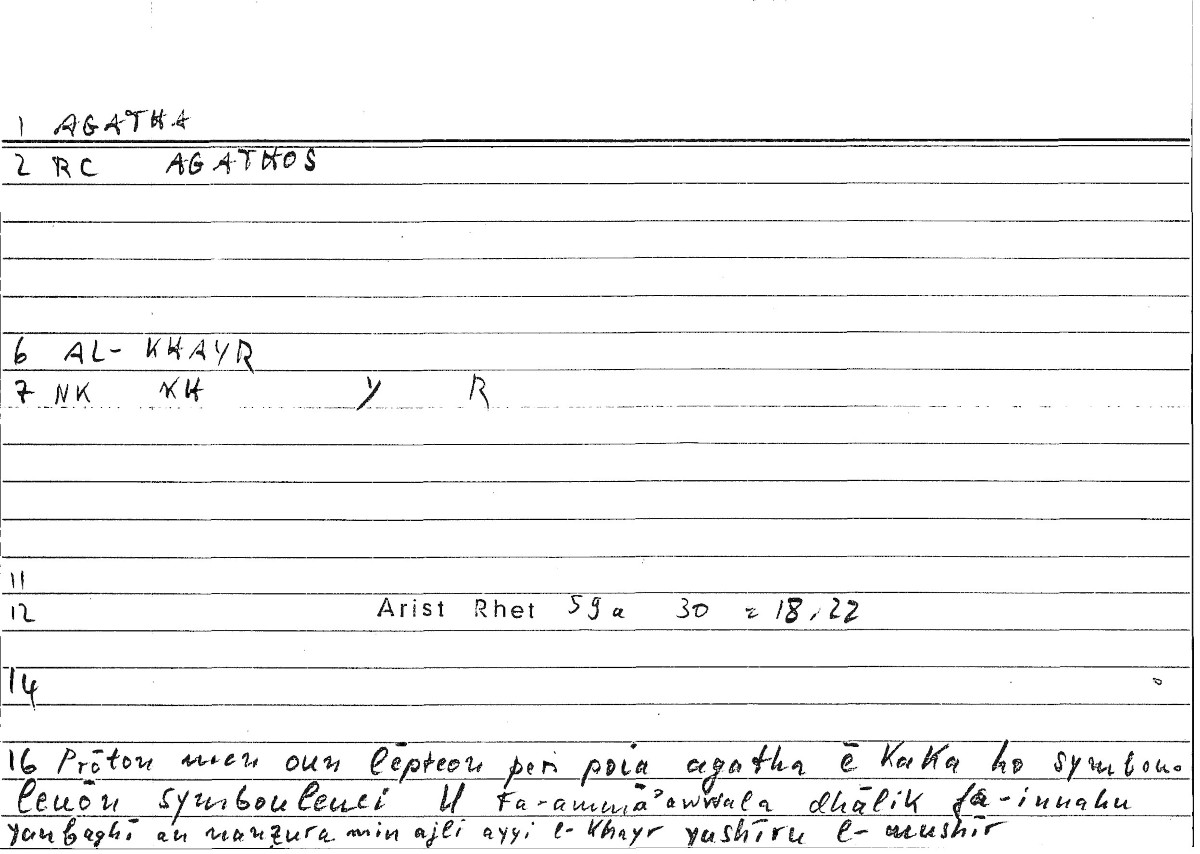 1 AGATHA
2 RC AGATHOS
6 AL- KHAYR
7 NK KH Y R
11
12 Arist Rhet 59a 30 = 18,22
14
16 Prōton men oun lēpteon peri poia agatha ē kaka ho symbou-
leuōn symbouleuei // Fa-ammā ʾawwala dhālik fa-innahu
yanbaghī an nanẓura min ajli ayyi l-khayr yushīru l-mushīr